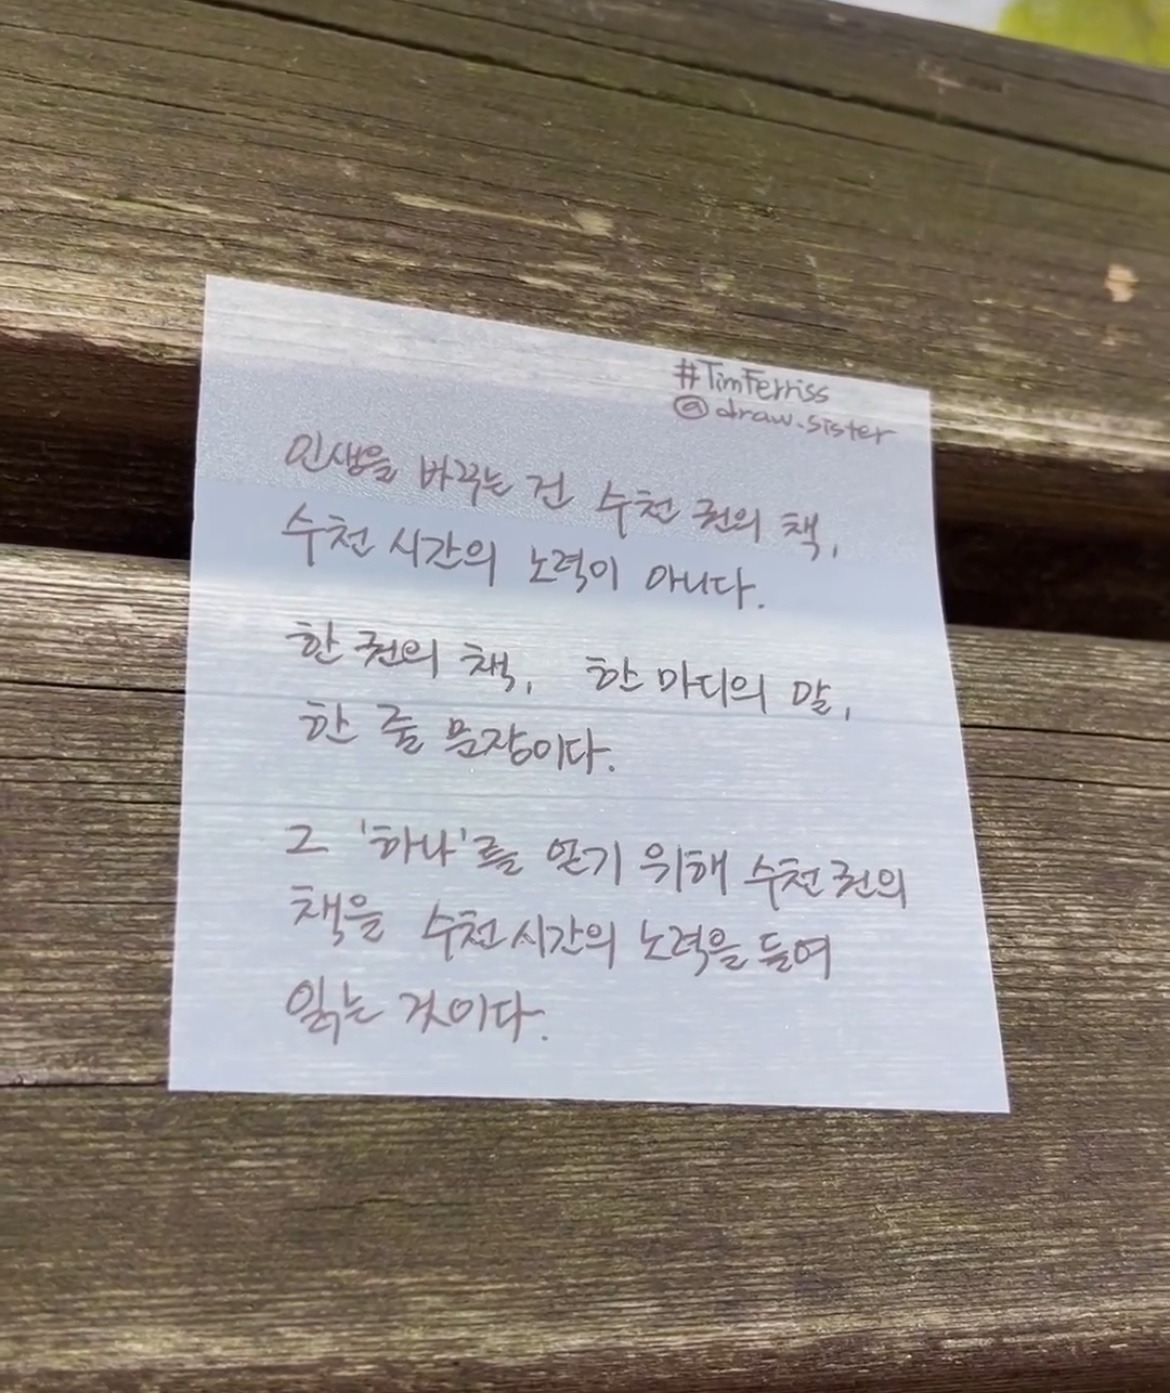 #TimFerriss
@draw.sister
인생을 바꾸는 건 수천 권의 책,
수천 시간의 노력이 아니다.
한 권의 책, 한 마디의 말,
한 줄 문장이다.
그 '하나'를 얻기 위해 수천 권의
책을 수천 시간의 노력을 들여
읽는 것이다.